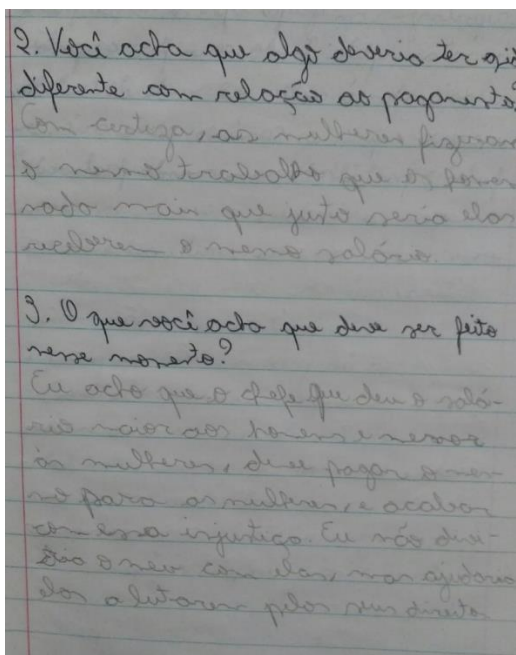 2. Você acha que algo deveria ter sid
diferente com relação ao pagamento?
Com certeza, as mulheres fizeram
o mesmo trabalho que os homen
nada mais que justo seria elas
receberem o mesmo salário.
3. O que você acha que deve ser feito
nesse momento?
Eu acho que o chefe que deu o salá-
rio maior aos homens e menor
às mulheres, deve pagar o mes-
mo para as mulheres, e acabar
com essa injustiça. Eu não divi-
diria o meu com elas, mas ajudaria
elas a lutarem pelos seus direitos